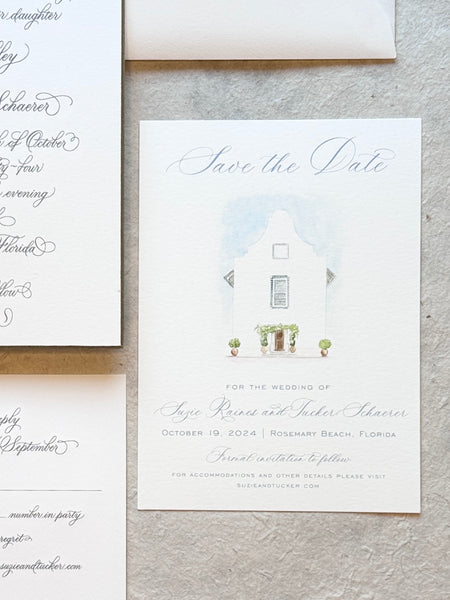 r daughter
ley
Schaerer
h of October
ty-four
evening
Florida
llow
Save the Date
FOR THE WEDDING OF
Suzie Raines and Tucker Schaerer
October 19, 2024 | Rosemary Beach, Florida
Formal invitation to follow
FOR ACCOMMODATIONS AND OTHER DETAILS PLEASE VISIT
SUZIEANDTUCKER.COM
eply
September
number in party
regret
suzieandtucker.com